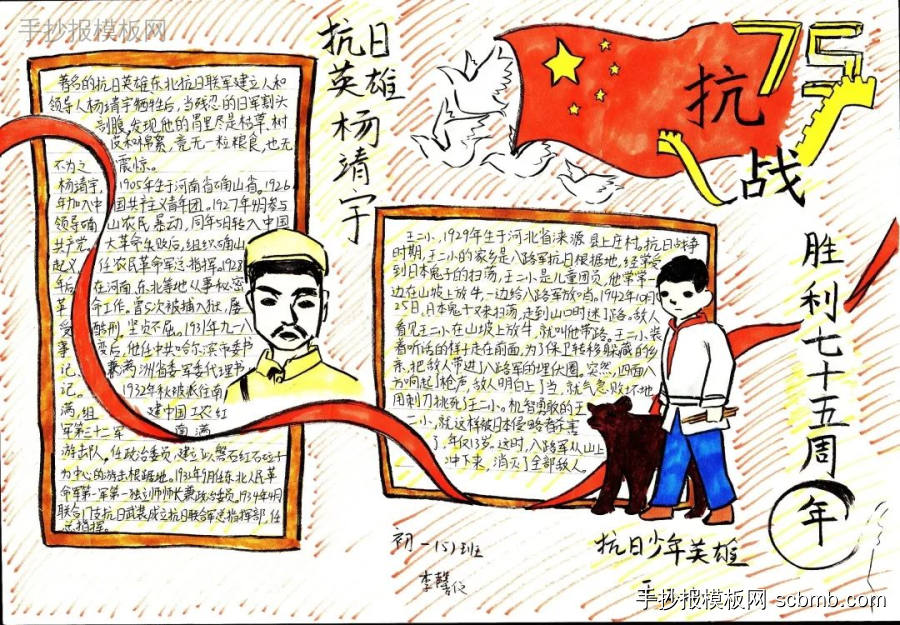 手抄报模板网
抗日
英雄
杨
靖
宇
75
抗
战
胜利七十五周年
著名的抗日英雄东北抗日联军建立人和
领导人杨靖宇牺牲后,当残忍的日军割头
剖腹,发现他的胃里尽是枯草、树
皮和棉絮,竟无一粒粮食,也无
不为之震惊。
杨靖宇,1905年生于河南省确山省。1926
年加入中国共产主义青年团。1927年4月参与
领导确山农民暴动,同年5月转入中国
共产党。大革命失败后,组织确山
起义,任农民革命军总指挥。1928
年后在河南、东北等地从事秘密
革命工作。曾5次被捕入狱,屡
受酷刑,坚贞不屈。1931年九一八
事变后,他任中共哈尔滨市委书
记,兼满洲省委军委代理书
记。1932年秋被派往南
满,组建中国工农红
军第三十二军南满
游击队。任政治委员,建立以磐石红石砬子
为中心的游击根据地。1933年9月任东北人民革
命军第一军第一独立师师长兼政治委员。1934年4月
联合17支抗日武装成立抗日联合军总指挥部,任
总指挥。
王二小,1929年生于河北省涞源县上庄村。抗日战争
时期,王二小的家乡是八路军抗日根据地,经常受
到日本鬼子的扫荡,王二小是儿童团员,他常常一
边在山坡上放牛,一边给八路军放哨。1942年10月
25日,日本鬼子又来扫荡,走到山口时迷了路。敌人
看见王二小在山坡上放牛,就叫他带路。王二小装
着听话的样子走在前面,为了保卫转移躲藏的乡
亲,把敌人带进了八路军的埋伏圈。突然,四面八
方响起了枪声,敌人明白上了当,就气急败坏地
用刺刀挑死了王二小。机智勇敢的王
二小,就这样被日本侵略者杀害
了,年仅13岁。这时,八路军从山上
冲下来,消灭了全部敌人。
抗日少年英雄
初一(5)班
手抄报模板网 scbmb.com